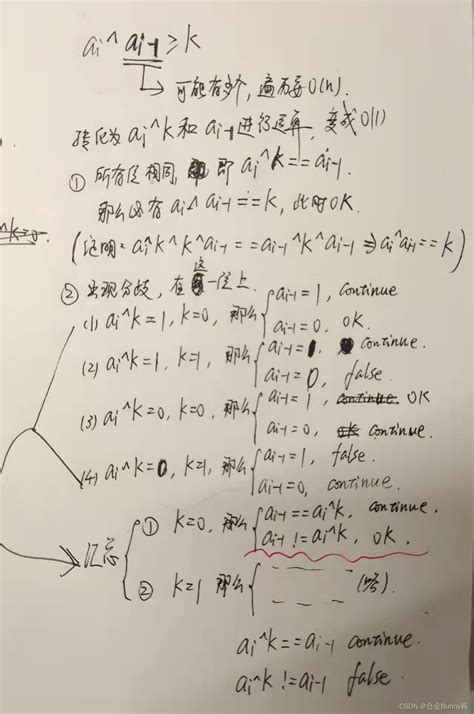 ai^ai-1≥k
可能有多个，遍历要O(n).
转化为 ai^k 和 ai-1 进行运算，变成O(1)
① 所有位相同, 即 ai^k==ai-1.
那么必有 ai^ai-1==k, 此时OK.
(证明: ai^k^k^ai-1==ai-1^k^ai-1 => ai^ai-1==k)
② 出现分歧, 在这一位上.
(1) ai^k=1, k=0, 那么 { ai-1=1, continue
ai-1=0, OK.
(2) ai^k=1, k=1, 那么 { ai-1=1, continue.
ai-1=0, false.
(3) ai^k=0, k=0, 那么 { ai-1=1, OK
ai-1=0, continue.
(4) ai^k=0, k=1, 那么 { ai-1=1, false.
ai-1=0, continue.
汇总 { ① k=0, 那么 { ai-1==ai^k, continue.
ai-1!=ai^k, OK.
② k=1 那么 { — — (略).
— —
ai^k==ai-1 continue.
ai^k!=ai-1 false.
CSDN @合金Bunny酱